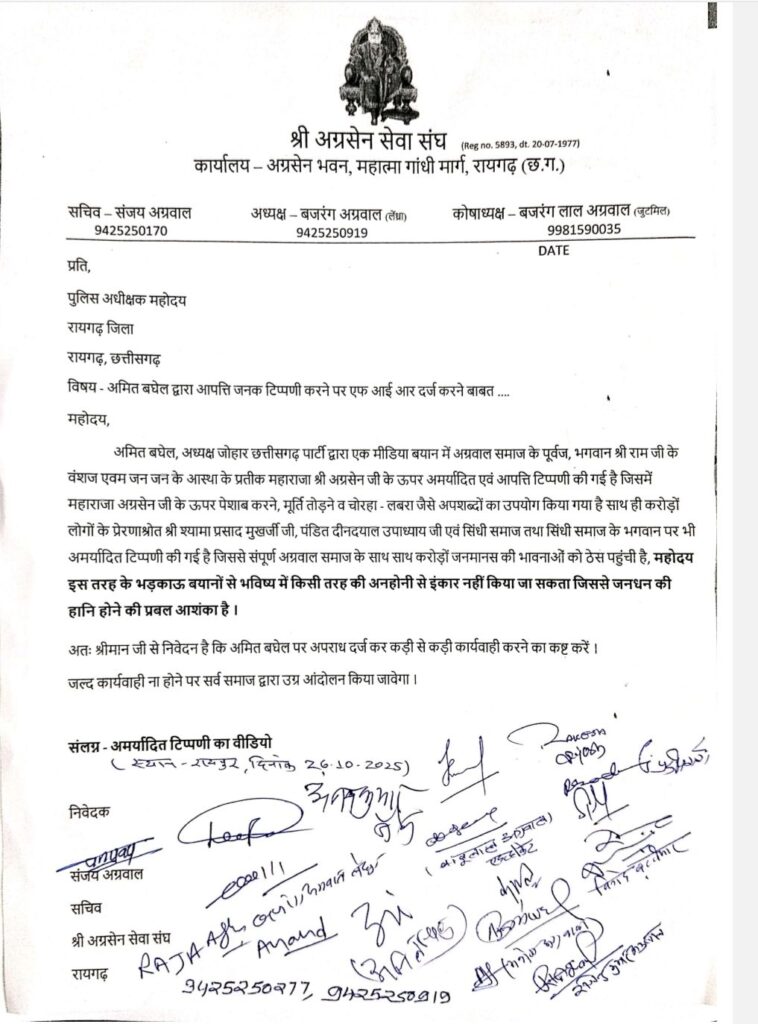 श्री अग्रसेन सेवा संघ (Reg no. 5893, dt. 20-07-1977)
कार्यालय – अग्रसेन भवन, महात्मा गांधी मार्ग, रायगढ़ (छ.ग.)
सचिव – संजय अग्रवाल अध्यक्ष – बजरंग अग्रवाल (लेंध्रा) कोषाध्यक्ष – बजरंग लाल अग्रवाल (जुटमिल)
9425250170 9425250919 9981590035
DATE
प्रति,
पुलिस अधीक्षक महोदय
रायगढ़ जिला
रायगढ़, छत्तीसगढ़
विषय - अमित बघेल द्वारा आपत्ति जनक टिप्पणी करने पर एफ आई आर दर्ज करने बाबत ....
महोदय,
अमित बघेल, अध्यक्ष जोहार छत्तीसगढ़ पार्टी द्वारा एक मीडिया बयान में अग्रवाल समाज के पूर्वज, भगवान श्री राम जी के
वंशज एवम जन जन के आस्था के प्रतीक महाराजा श्री अग्रसेन जी के ऊपर अमर्यादित एवं आपत्ति टिप्पणी की गई है जिसमें
महाराजा अग्रसेन जी के ऊपर पेशाब करने, मूर्ति तोड़ने व चोरहा - लबरा जैसे अपशब्दों का उपयोग किया गया है साथ ही करोड़ों
लोगों के प्रेरणाश्रोत श्री श्यामा प्रसाद मुखर्जी जी, पंडित दीनदयाल उपाध्याय जी एवं सिंधी समाज तथा सिंधी समाज के भगवान पर भी
अमर्यादित टिप्पणी की गई है जिससे संपूर्ण अग्रवाल समाज के साथ साथ करोड़ों जनमानस की भावनाओं को ठेस पहुंची है, महोदय
इस तरह के भड़काऊ बयानों से भविष्य में किसी तरह की अनहोनी से इंकार नहीं किया जा सकता जिससे जनधन की
हानि होने की प्रबल आशंका है ।
अतः श्रीमान जी से निवेदन है कि अमित बघेल पर अपराध दर्ज कर कड़ी से कड़ी कार्यवाही करने का कष्ट करें ।
जल्द कार्यवाही ना होने पर सर्व समाज द्वारा उग्र आंदोलन किया जावेगा ।
संलग्न - अमर्यादित टिप्पणी का वीडियो
(स्थान - रायपुर, दिनांक 26.10.2025)
निवेदक
संजय अग्रवाल
सचिव
श्री अग्रसेन सेवा संघ
रायगढ़
RAJA
Anand
9425250277, 9425250919